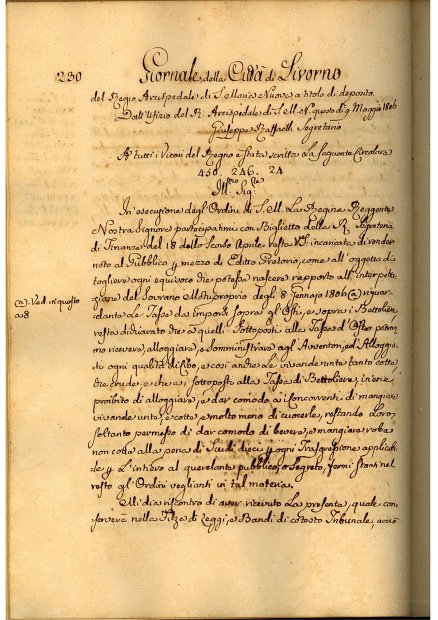 230 Giornale della Città di Livorno
del Regio Arcispedale di S. Maria Nuova a titolo di deposito.
Dall'Ufizio del R. Arcispedale di S. M. N. questo dì 9 Maggio 1806
Giuseppe Raffaelli Segretario
A' tutti i Vicari del Regno è stata scritta la seguente Circolare
450. 246. 24
Ill.mo Sig.re
In esecuzione degl'Ordini di S. M. La Regina Reggente
Nostra Signora partecipatimi con Biglietto della R. Segreteria
di Finanze del 18 dello scorso Aprile resta VS. incaricata di render
noto al Pubblico p mezzo di Editto Pretorio, come all'oggetto di
togliere ogni equivoco che potesse nascere rapporto all'interpetra
zione del Sovrano Motuproprio degli 8 Gennajo 1806 (a) riguar
dante le Tasse da imporsi sopra gl'Osti, e sopra i Bettolieri
resta dichiarato che a quelli sottoposti alla Tassa d'Oste posso
no ricevere, alloggiare, e somministrare agl'Avventori, ed Alloggia
ti ogni qualità di Cibo, e così anche le vivande unte tanto cotte,
che crude, e che ai sottoposti alla Tassa di Bettoliere, viene
proibito di alloggiare, e dar comodo ai Concorrenti di mangiare
vivande unte, e cotte, e molto meno di cuocerle, restando Loro
soltanto permesso di dar comodo di bevere, e mangiare roba
non cotta alla pena di Scudi dieci p ogni Trasgressione applicabi
le p L'intiero al querelante pubblico, o segreto, fermi stanti nel
resto gl'Ordini veglianti in tal materia.
Mi dia riscontro di aver ricevuto La presente, quale con
serverà nella Filza di Leggi, e Bandi di cotesto Tribunale, acciò
(a) Ved. in questo
a 8